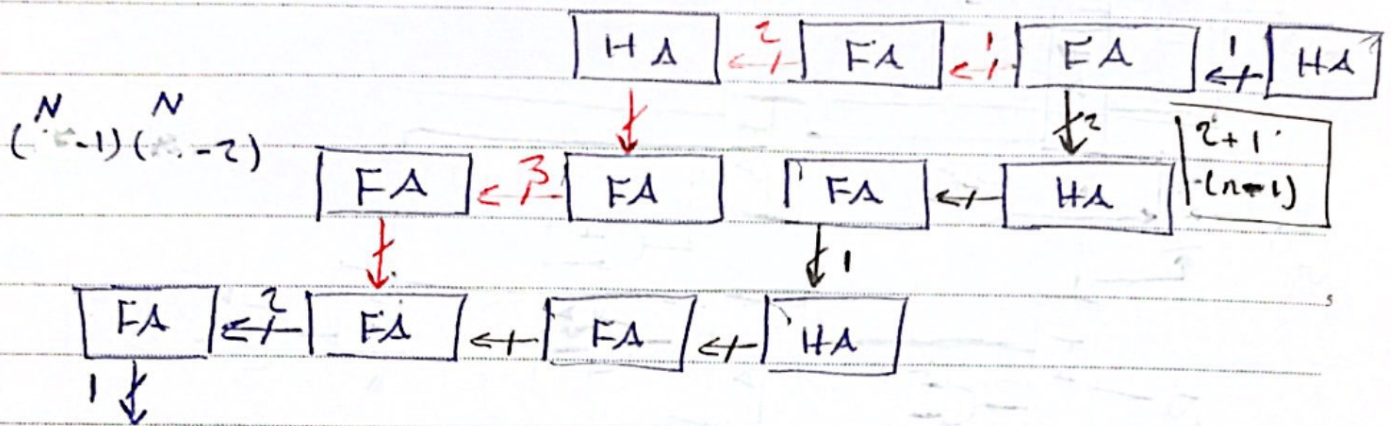 HA 2 FA 1 FA 1 HA
N N
( -1)( -2)
2
2+1
(n-1)
FA 3 FA FA HA
1
FA 2 FA FA HA
1